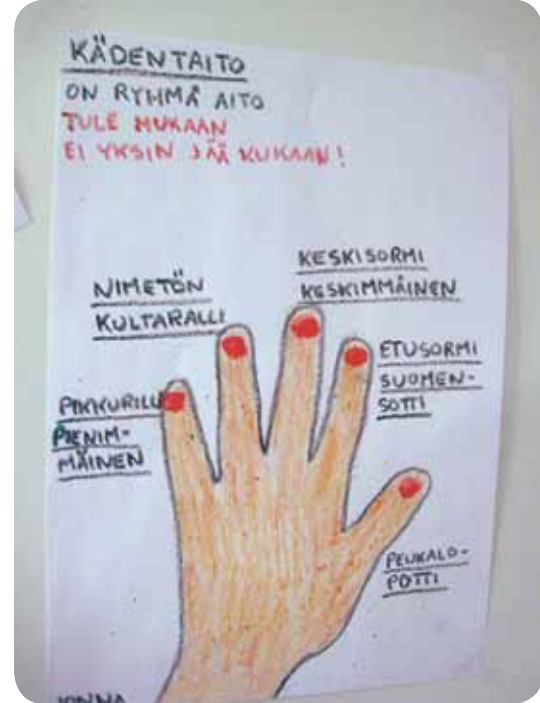 KÄDENTAITO
ON RYHMÄ AITO
TULE MUKAAN
EI YKSIN JÄÄ KUKAAN!
KESKISORMI
KESKIMMÄINEN
NIMETÖN
KULTARALLI
ETUSORMI
SUOMEN-
SOTTI
PIKKURILLI
PIENIM-
MÄINEN
PEUKALO-
POTTI